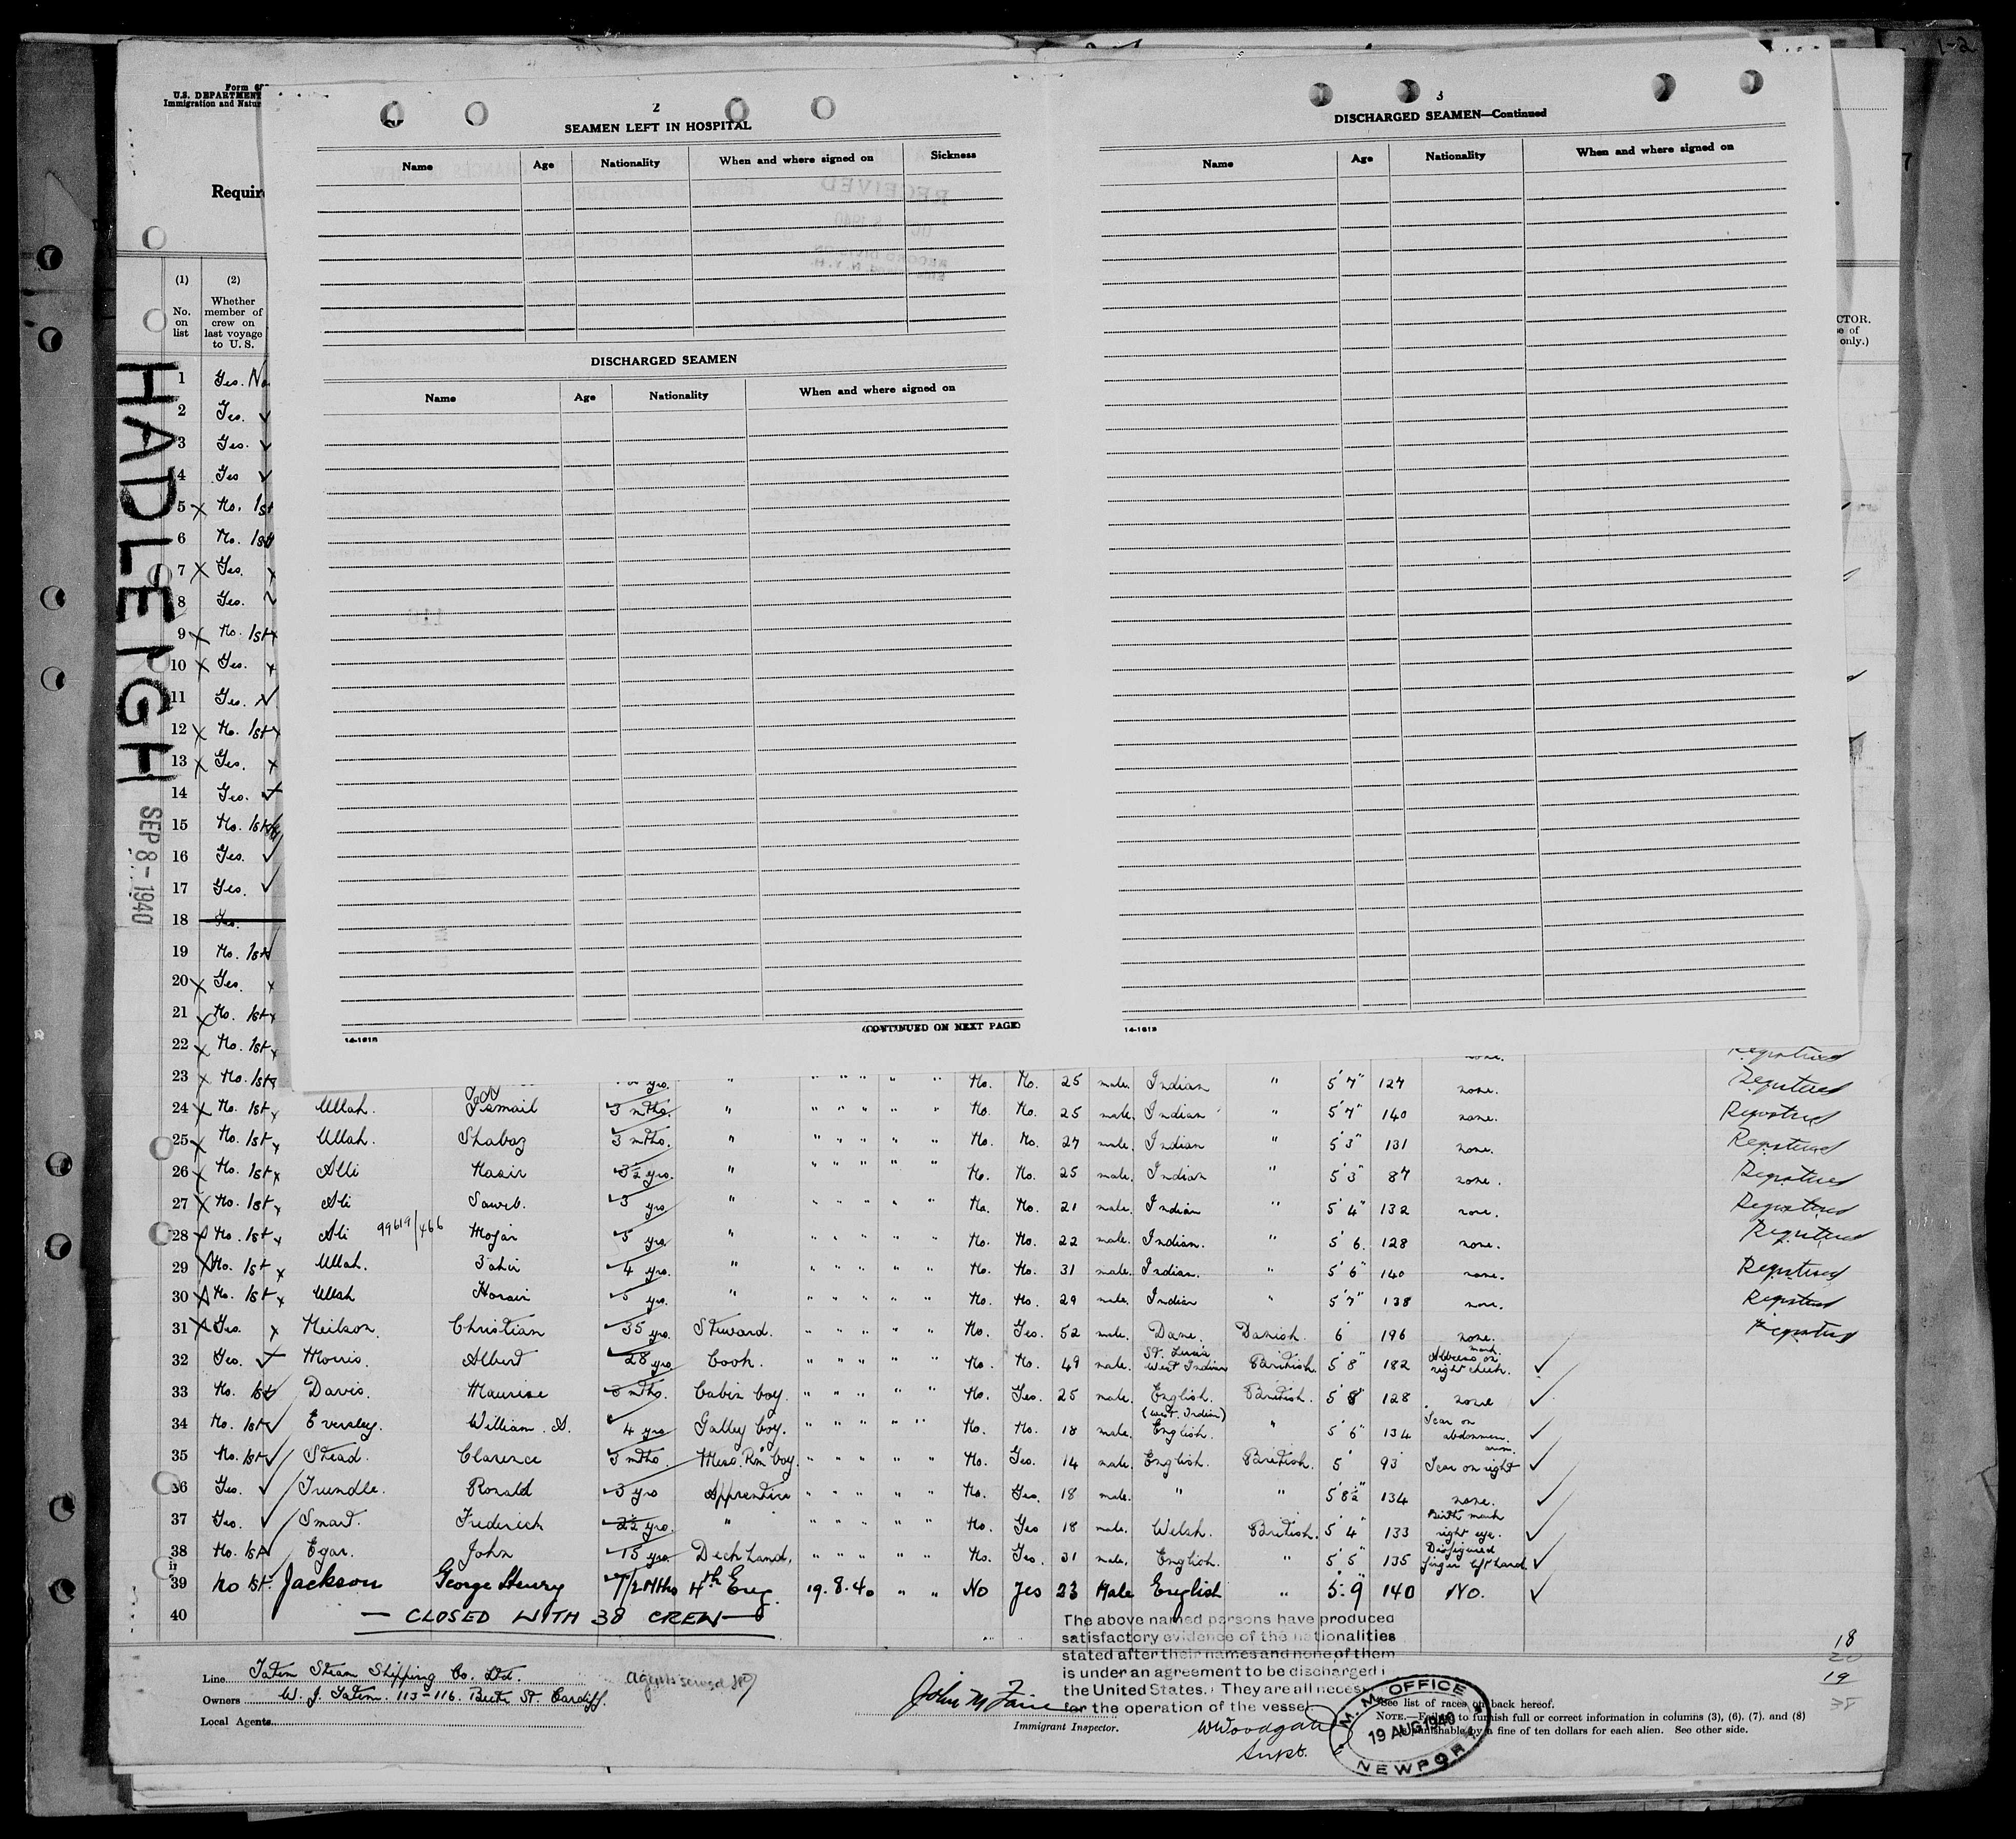 1-2
Form 6
U.S. DEPARTMENT
Immigration and Natur
Requir
7
2
SEAMEN LEFT IN HOSPITAL
Name Age Nationality When and where signed on Sickness
RECEIVED
RECORD DIVISION
DISCHARGED SEAMEN
Name Age Nationality When and where signed on
(CONTINUED ON NEXT PAGE)
14-1618
3
DISCHARGED SEAMEN—Continued
Name Age Nationality When and where signed on
14-1618
CTOR.
e of
only.)
(1) (2)
No. on list
Whether member of crew on last voyage to U. S.
HADLEIGH
SEP 8 - 1940
1 Yes. No
2 Yes. ✓
3 Yes. ✓
4 Yes ✓
5 x No. 1st
6 No. 1st
7 x Yes. x
8 Yes.
9 x No. 1st x
10 x Yes. x
11 Yes. ✓
12 x No. 1st x
13 x Yes. x
14 Yes. ✓
15 No. 1st
16 Yes. ✓
17 Yes. ✓
18 Yes.
19 No. 1st
20 x Yes. x
21 x No. 1st x
22 x No. 1st x none. Registered
23 x No. 1st x yrs. " " " " " " No. No. 25 male. Indian " 5'7" 127 none. Registered
24 x No. 1st x Ullah. Ismail 3 mths. " " " " " " No. No. 25 male. Indian " 5'7" 140 none. Registered
25 x No. 1st x Ullah. Shabaz 3 mths. " " " " " " No. No. 27 male. Indian " 5'3" 131 none. Registered
26 x No. 1st x Alli Nasir 3½ yrs. " " " " " " No. No. 25 male. Indian " 5'3" 87 none. Registered
27 x No. 1st x Ali 3 yrs " " " " " " No. No. 21 male. Indian " 5'4" 132 none. Registered
28 x No. 1st x Ali 99619/466 Mojar 5 yrs. " " " " " " No. No. 22 male. Indian. " 5'6. 128 none. Registered
29 x No. 1st x Ullah. Tahir 4 yrs. " " " " " " No. No. 31 male. Indian. " 5'6" 140 none. Registered
30 x No. 1st x Ullah yrs. " " " " " " No. No. 29 male. Indian " 5'7" 138 none. Registered
31 x Yes. x Neilson. Christian 35 yrs. Steward. " " " " " No. Yes. 52 male. Dane. Danish. 6' 196 none. Registered
32 Yes. ✓ Morris. Albert 28 yrs Cook. " " " " " No. No. 49 male. St. Lucia West Indian British. 5'8" 182 Abscess mark on right cheek. ✓
33 No. 1st ✓ Davis. Maurice 3 mths. Cabin boy. " " " " " No. Yes. 25 male. English. British. 5'8" 128 none ✓
34 No. 1st ✓ Eversley. William. A. 4 yrs Galley boy. " " " " " No. No. 18 male. (West. Indian) English. " 5'6" 134 Scar on abdomen. ✓
35 No. 1st ✓ Stead. Clarence 3 mths. Mess. Rm boy. " " " " " No. Yes. 14 male. English. British. 5' 93 Scar on right arm. ✓
36 Yes. ✓ Trundle. Ronald 3 yrs Apprentice " " " " " No. Yes. 18 male. " " 5'8½" 134 none. ✓
37 Yes. ✓ Smart. Frederick 2½ yrs. " " " " " " No. Yes 18 male. Welsh. British. 5'4" 133 Birth mark right eye. ✓
38 No. 1st Egar. John 15 yrs. Deck hand. " " " " " No. Yes. 31 male. English. " 5'5" 135 Disfigured finger left hand ✓
39 No 1st. Jackson George Henry 4th Eng. 19. 8. 40 " " No Yes 23 Male English " 5.9" 140 No. ✓
40 — CLOSED WITH 38 CREW —
The above named persons have produced
satisfactory evidence of the nationalities
stated after their names and none of them
is under an agreement to be discharged i
the United States. They are all necess
for the operation of the vessel.
18
20
19
38
Line Tatem Steam Shipping Co. Ltd.
Owners W. J. Tatem. 113-116. Bute St. Cardiff.
Local Agents
Agents served
John M
Immigrant Inspector.
WWoodgate
Supt.
M. M. OFFICE
19 AUG 1940
NEWPORT
See list of races on back hereof.
NOTE.—Failure to furnish full or correct information in columns (3), (6), (7), and (8)
is punishable by a fine of ten dollars for each alien. See other side.